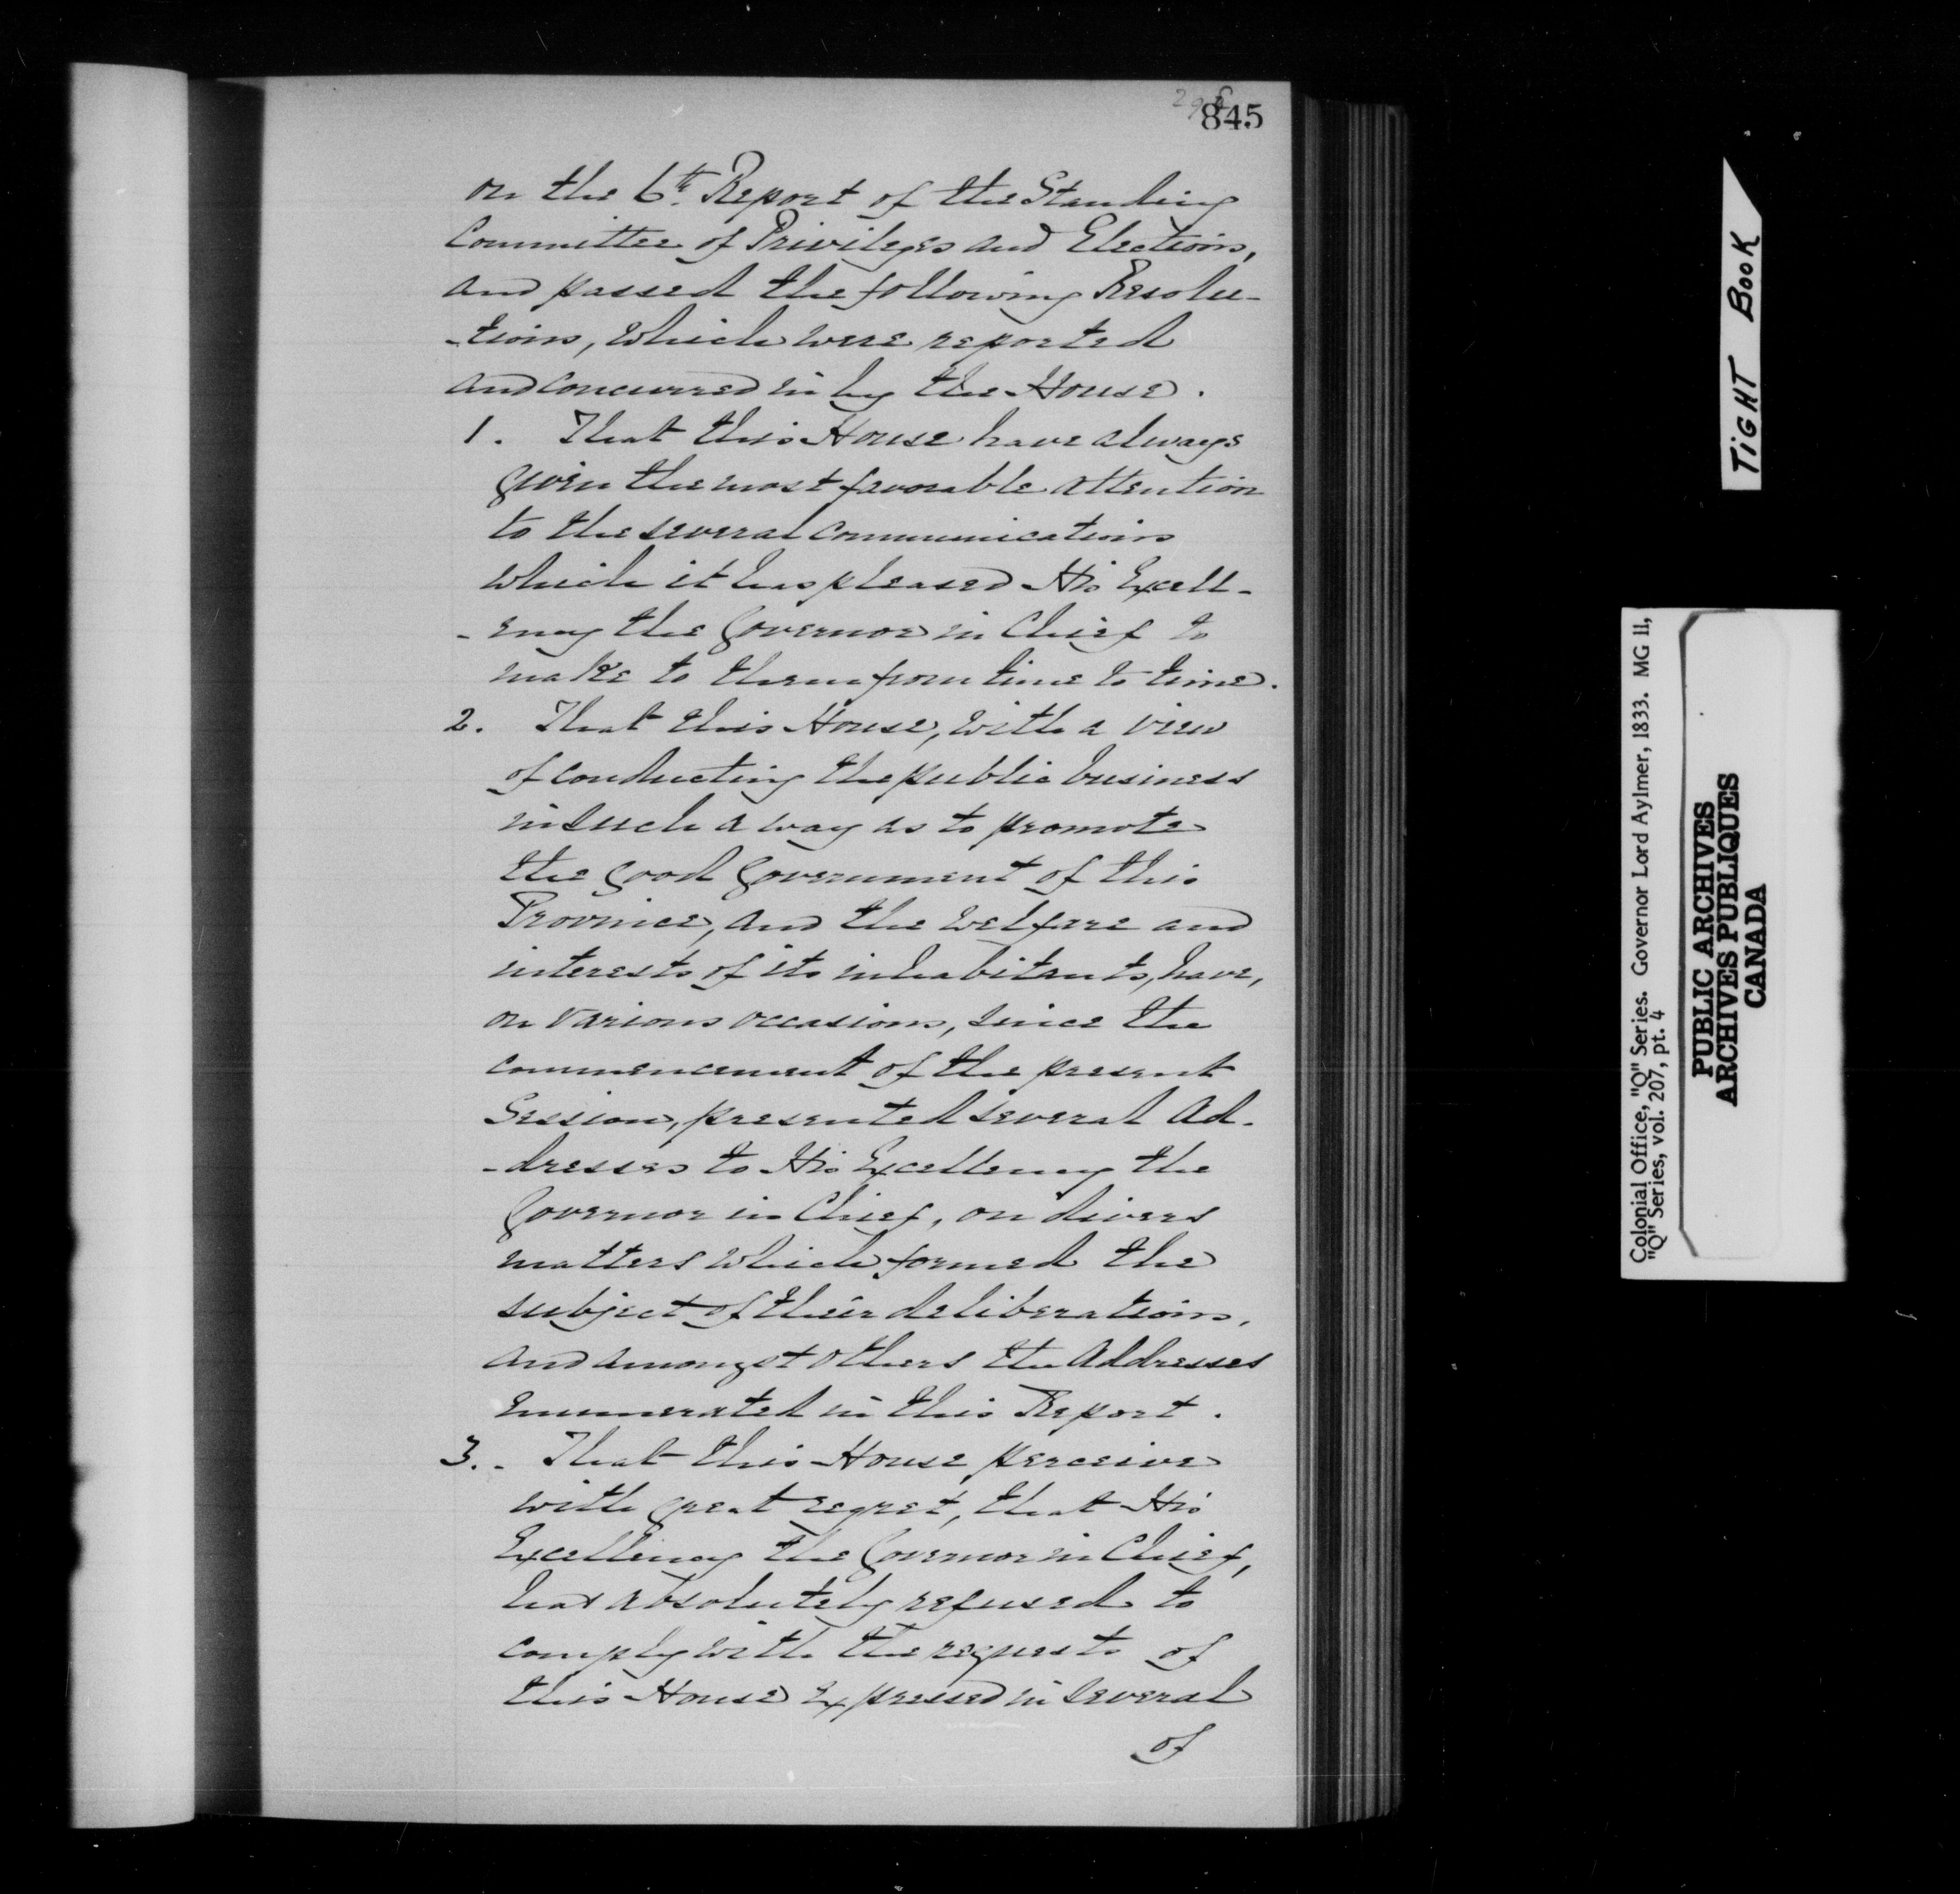 845
on the 6th. Report of the Standing
Committee of Privileges and Elections,
and passed the following Resolu-
-tions, which were reported
and concurred in by the House.
1. That this House have always
given the most favorable attention
to the several communications
which it has pleased His Excell-
-ency the Governor in Chief to
make to them from time to time.
2. That this House, with a view
of conducting the public business
in such a way as to promote
the good Government of this
Province, and the welfare and
interests of its inhabitants, have,
on various occasions, since the
commencement of the present
Session, presented several Ad-
-dresses to His Excellency the
Governor in Chief, on divers
matters which formed the
subject of their deliberations,
and amongst others the Addresses
enumerated in this Report.
3. - That this House perceive
with great regret, that His
Excellency the Governor in Chief,
has absolutely refused to
comply with the requests of
this House expressed in several
of
TIGHT BOOK
Colonial Office, "Q" Series. Governor Lord Aylmer, 1833. MG 11,
"Q" Series, vol. 207, pt. 4
PUBLIC ARCHIVES
ARCHIVES PUBLIQUES
CANADA